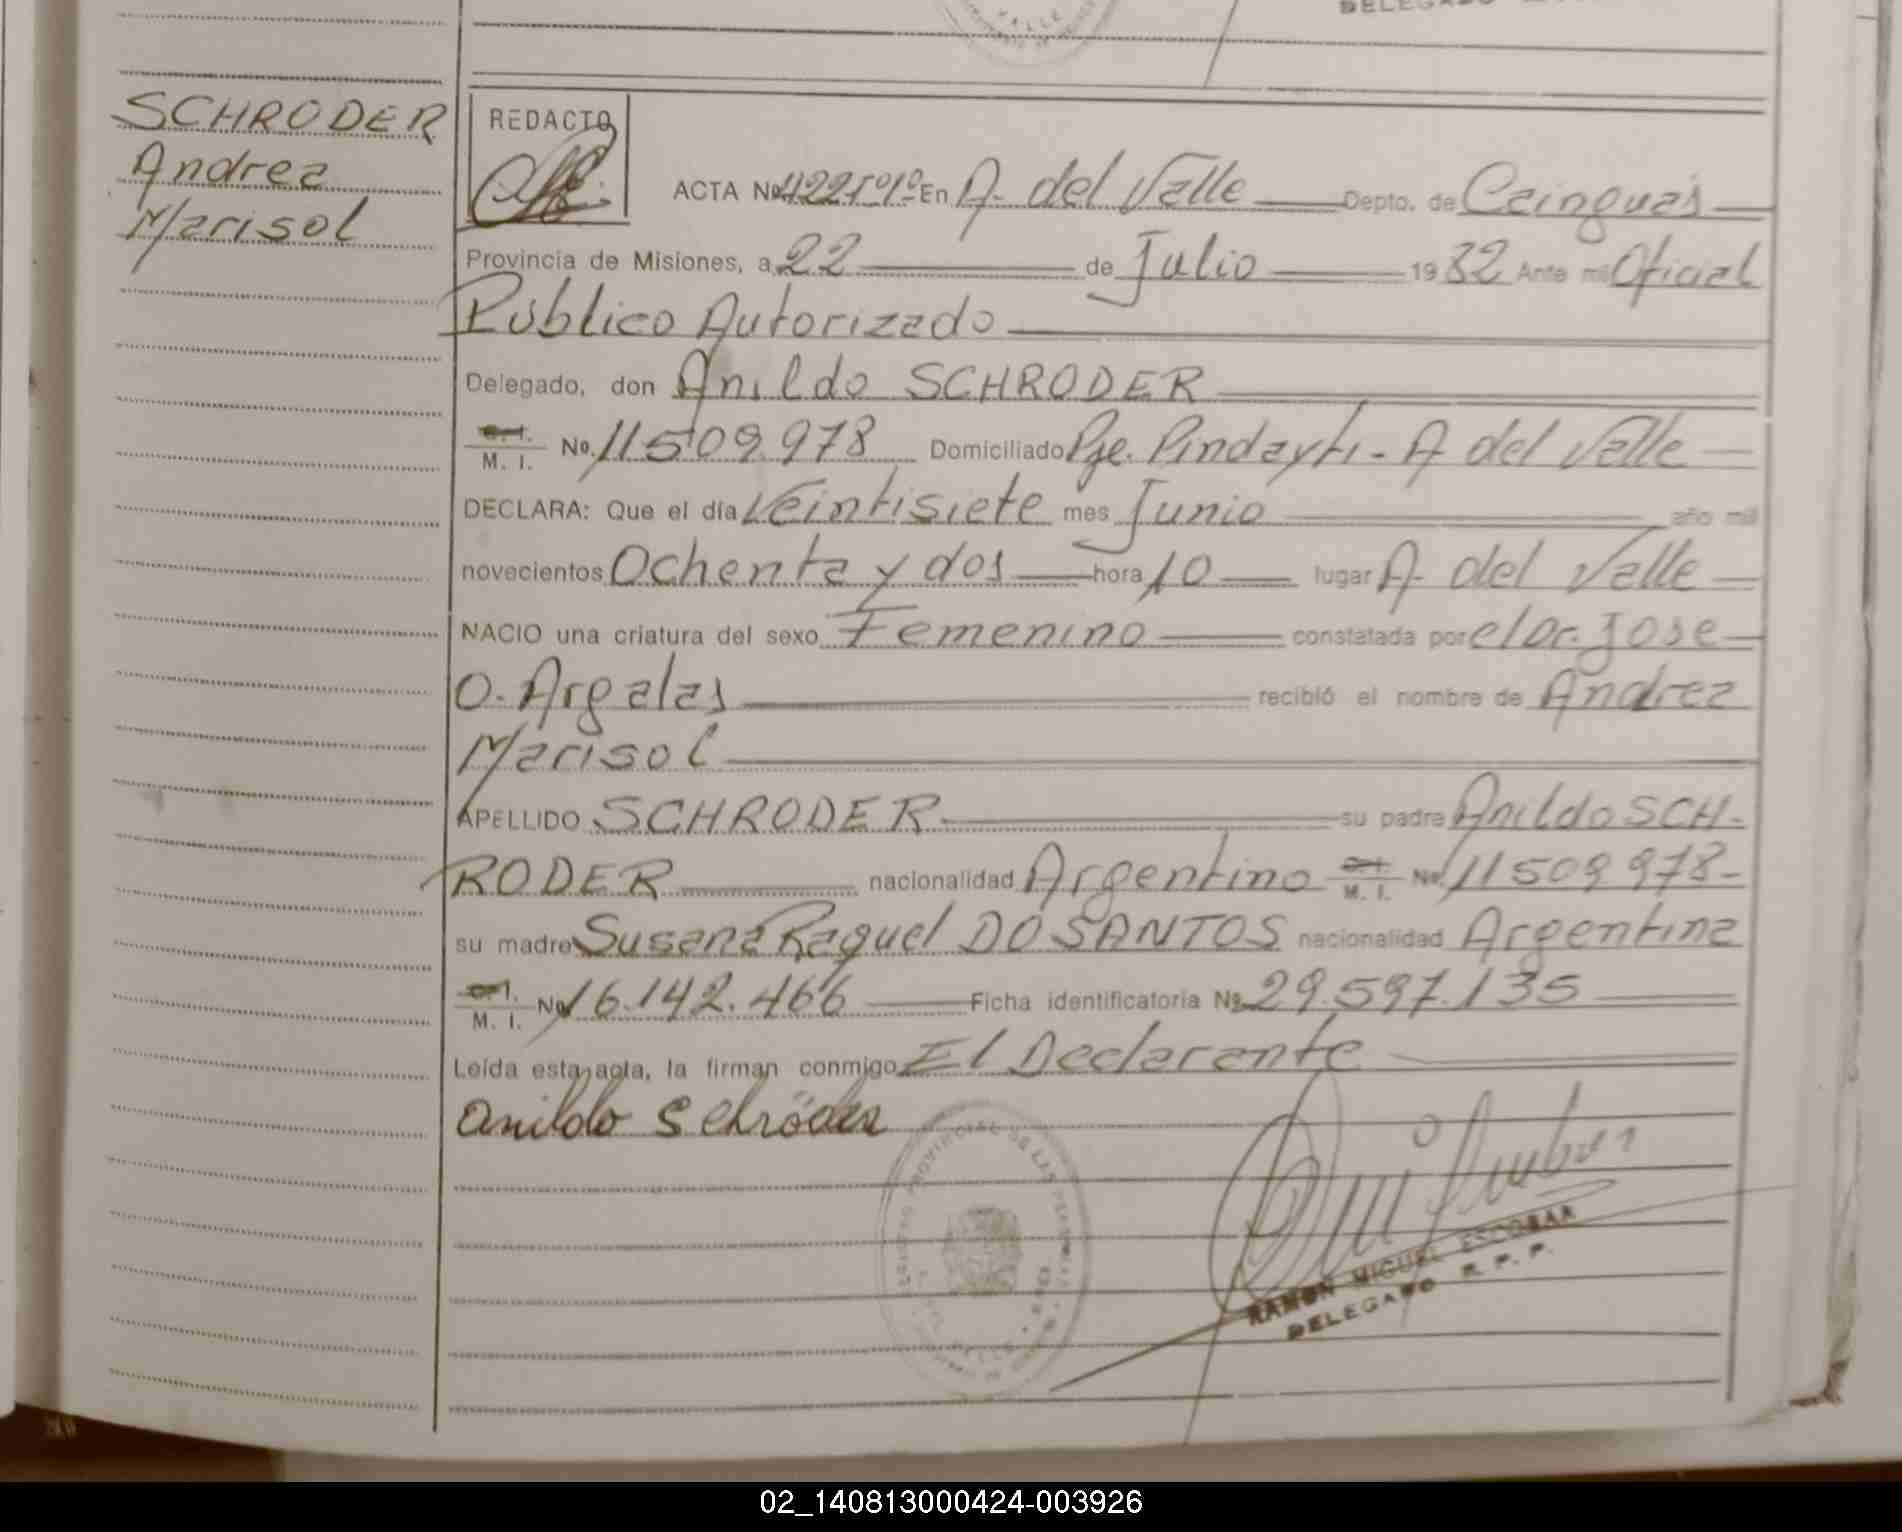 VALLE
DELEGADO
SCHRODER
Andrea
Marisol
REDACTO
ACTA No 422Tº1º En A. del Valle Depto. de Cainguás
Provincia de Misiones, a 22 de Julio 1982 Ante mi Oficial
Público Autorizado
Delegado, don Anildo SCHRODER
C.I. M. I. No. 11509.978 Domiciliado Pje. Pindayti - A del Valle
DECLARA: Que el día Veintisiete mes Junio año mil
novecientos Ochenta y dos hora 10 lugar A. del Valle
NACIO una criatura del sexo Femenino constatada por el Dr. Jose
O. Argalas recibió el nombre de Andrea
Marisol
APELLIDO SCHRODER su padre Anildo SCH-
RODER nacionalidad Argentino C.I. M. I. No. 11509978-
su madre Susana Raquel DO SANTOS nacionalidad Argentina
C.I. M. I. No 16.142.466 Ficha identificatoria No. 29.597.135
Leída esta acta, la firman conmigo El Declarante
Anildo Schröder
PROVINCIAL DE LAS PERSONAS
VALLE
RAMON MIGUEL ESCOBAR
DELEGADO R. P. P.
02_140813000424-003926